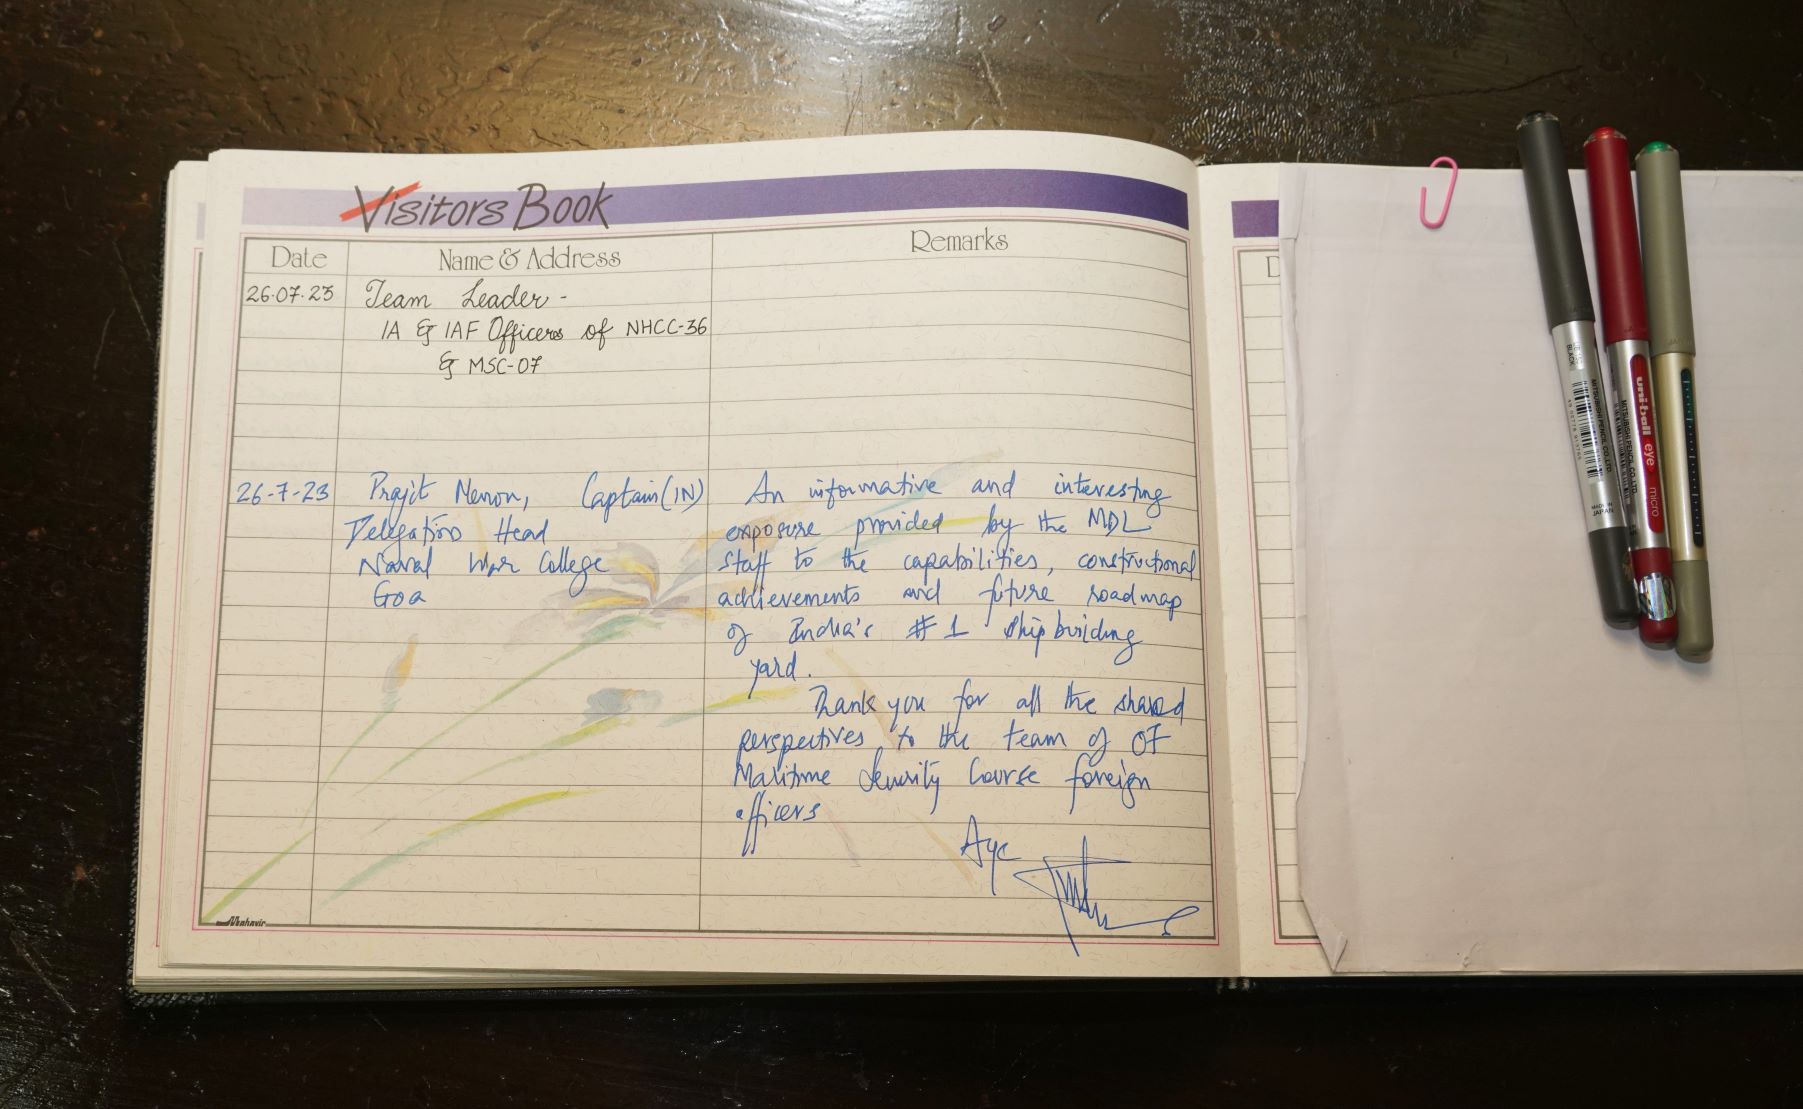 Visitors Book
Date
Name & Address
Remarks
26.07.23
Team Leader -
IA & IAF Officers of NHCC-36
& MSC-07
26-7-23
Prajit Menon, Captain (IN)
Delegation Head
Naval War College
Goa
An informative and interesting
exposure provided by the MDL
staff to the capabilities, constructional
achievements and future roadmap
of India's #1 Ship building
yard.
Thank you for all the shared
perspectives to the team of 07
Maritime Security Course foreign
officers
Aye
Mahavir
D
UB-150
BLACK
MITSUBISHI PENCIL CO. LTD.
MADE IN
JAPAN
uni-ball eye micro
MITSUBISHI PENCIL CO. LTD.